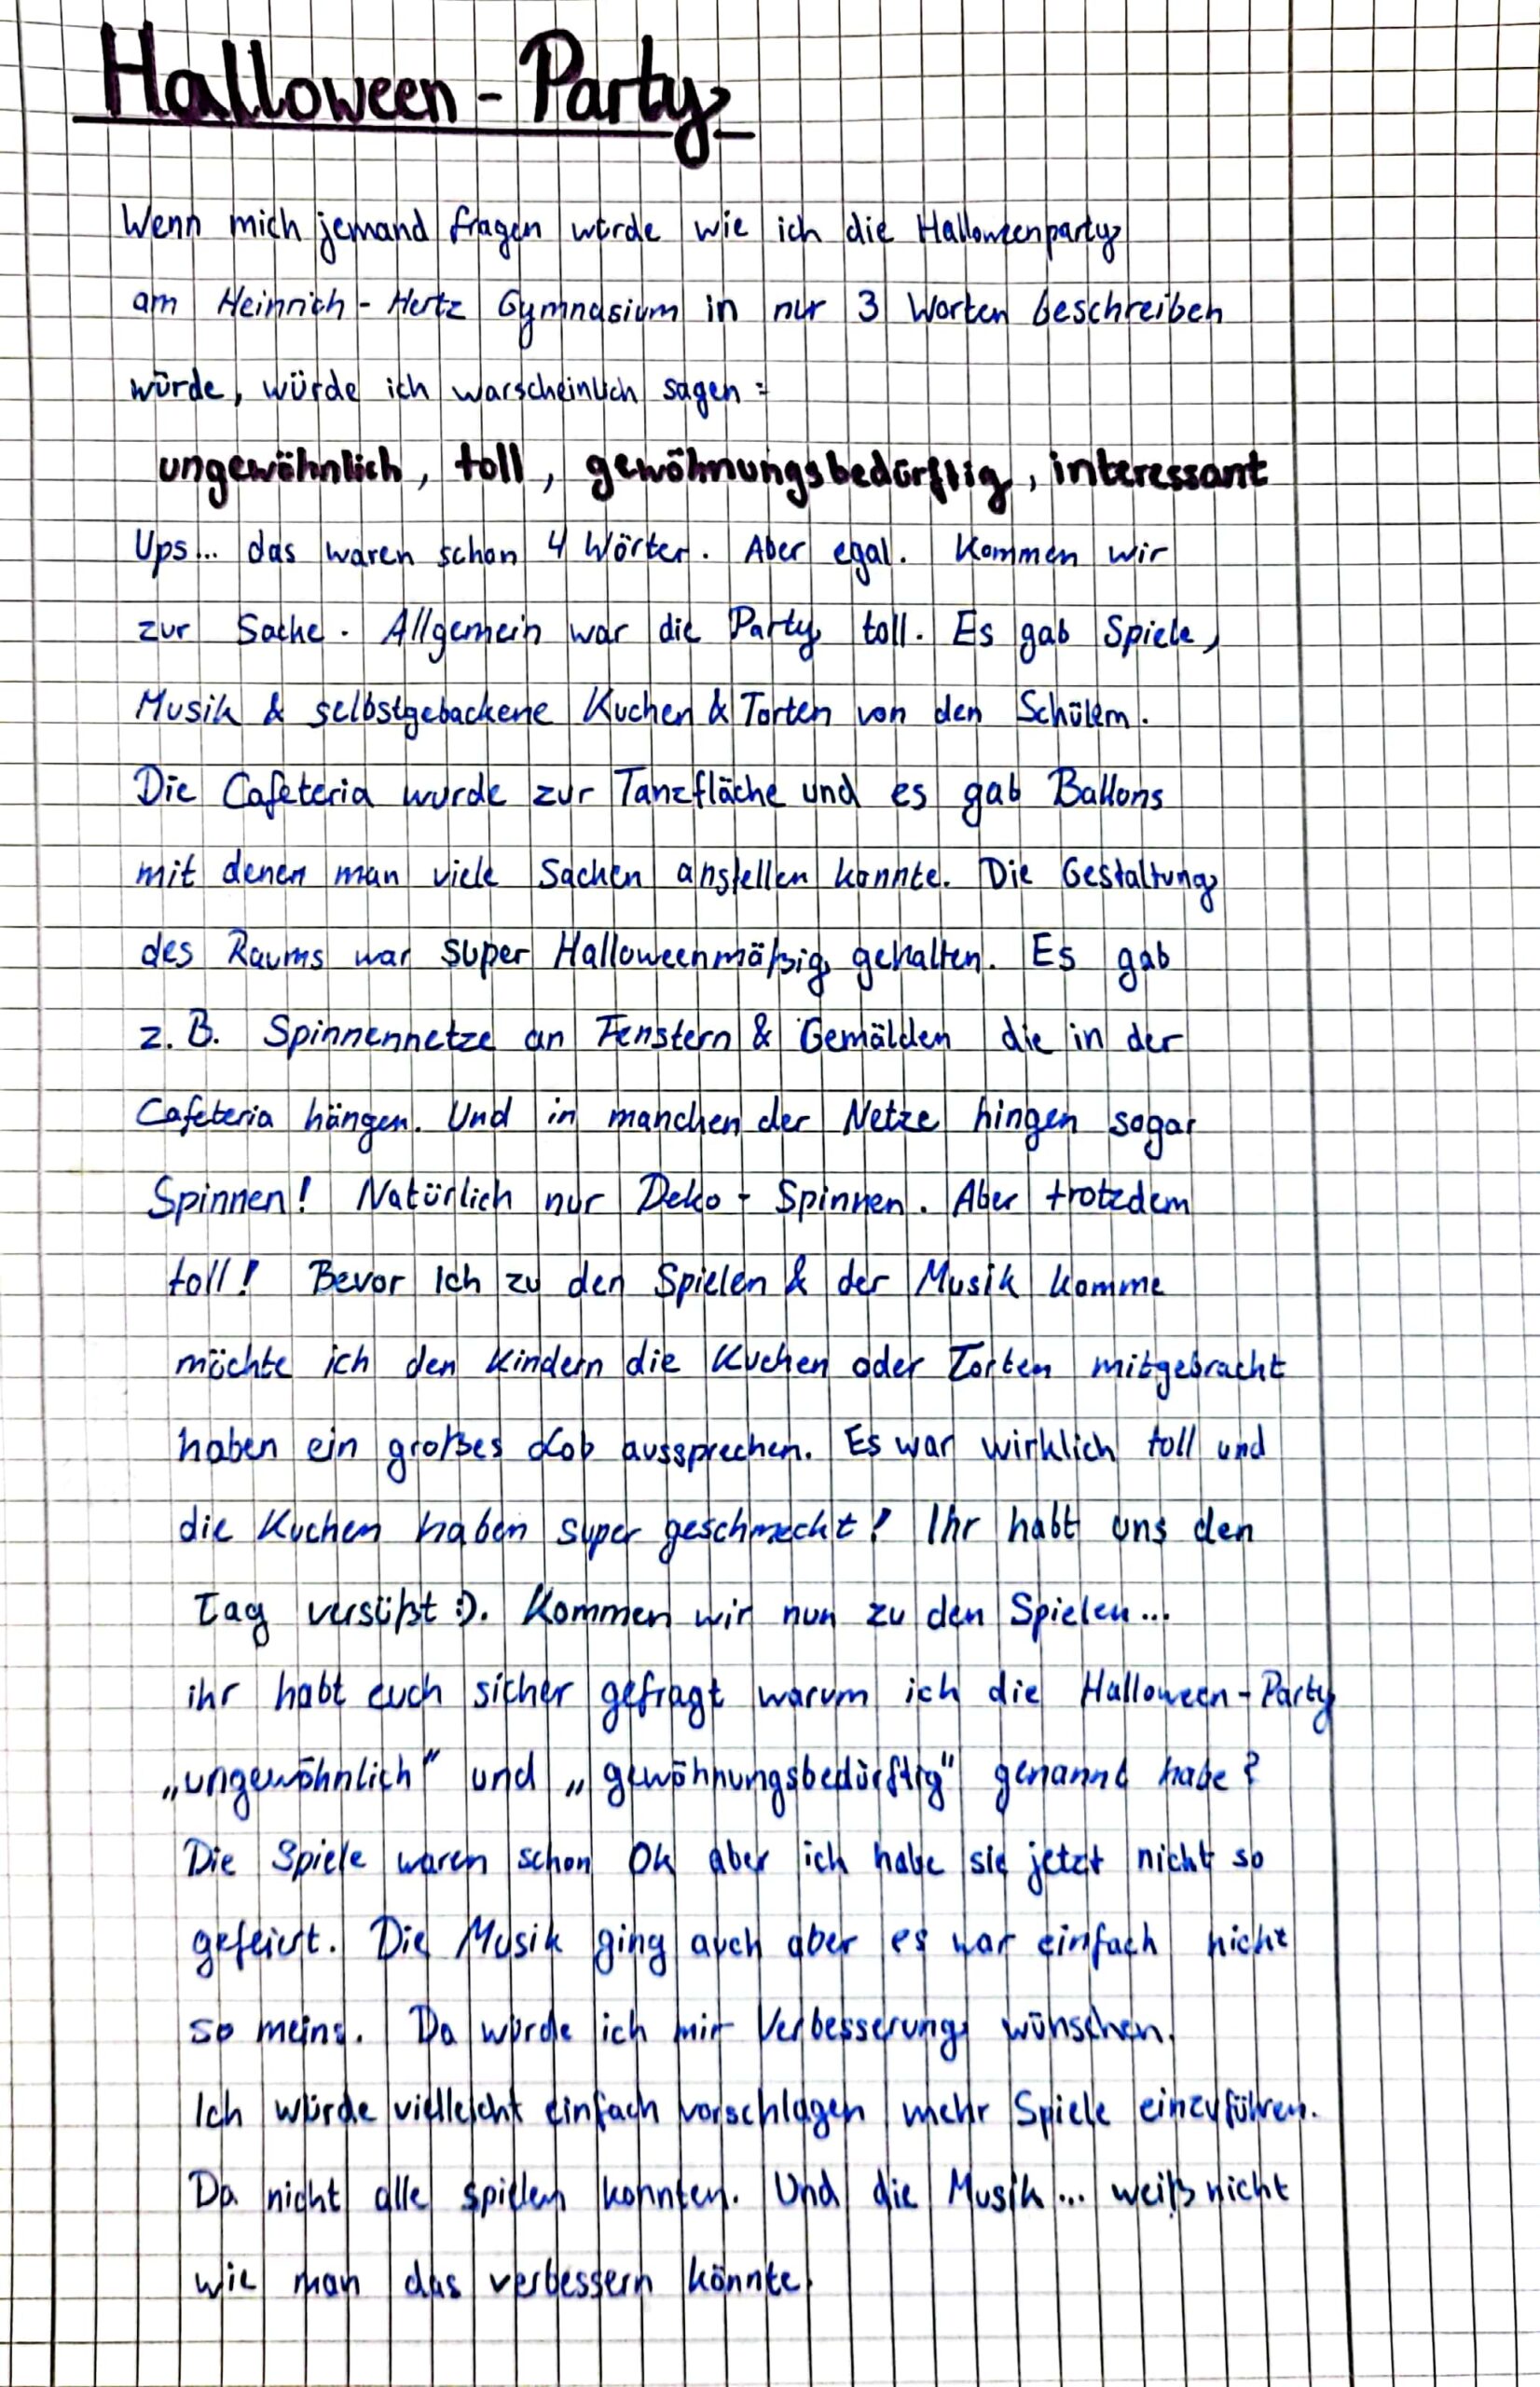 Halloween - Party
Wenn mich jemand fragen würde wie ich die Halloweenparty
am Heinrich - Hertz Gymnasium in nur 3 Worten beschreiben
würde, würde ich warscheinlich sagen:
ungewöhnlich, toll, gewöhnungsbedürftig, interessant
Ups... das waren schon 4 Wörter. Aber egal. Kommen wir
zur Sache. Allgemein war die Party toll. Es gab Spiele,
Musik & selbstgebackene Kuchen & Torten von den Schülern.
Die Cafeteria wurde zur Tanzfläche und es gab Ballons
mit denen man viele Sachen anstellen konnte. Die Gestaltung
des Raums war super Halloweenmäßig gehalten. Es gab
z. B. Spinnennetze an Fenstern & Gemälden die in der
Cafeteria hängen. Und in manchen der Netze hingen sogar
Spinnen! Natürlich nur Deko - Spinnen. Aber trotzdem
toll! Bevor ich zu den Spielen & der Musik komme
möchte ich den Kindern die Kuchen oder Torten mitgebracht
haben ein großes Lob aussprechen. Es war wirklich toll und
die Kuchen haben super geschmeckt! Ihr habt uns den
Tag versüßt :). Kommen wir nun zu den Spielen...
ihr habt euch sicher gefragt warum ich die Halloween - Party
„ungewöhnlich" und „gewöhnungsbedürftig" genannt habe?
Die Spiele waren schon Ok aber ich habe sie jetzt nicht so
gefeiert. Die Musik ging auch aber es war einfach nicht
so meins. Da würde ich mir Verbesserung wünschen.
Ich würde vielleicht einfach vorschlagen mehr Spiele einzuführen.
Da nicht alle spielen konnten. Und die Musik... weiß nicht
wie man das verbessern könnte.